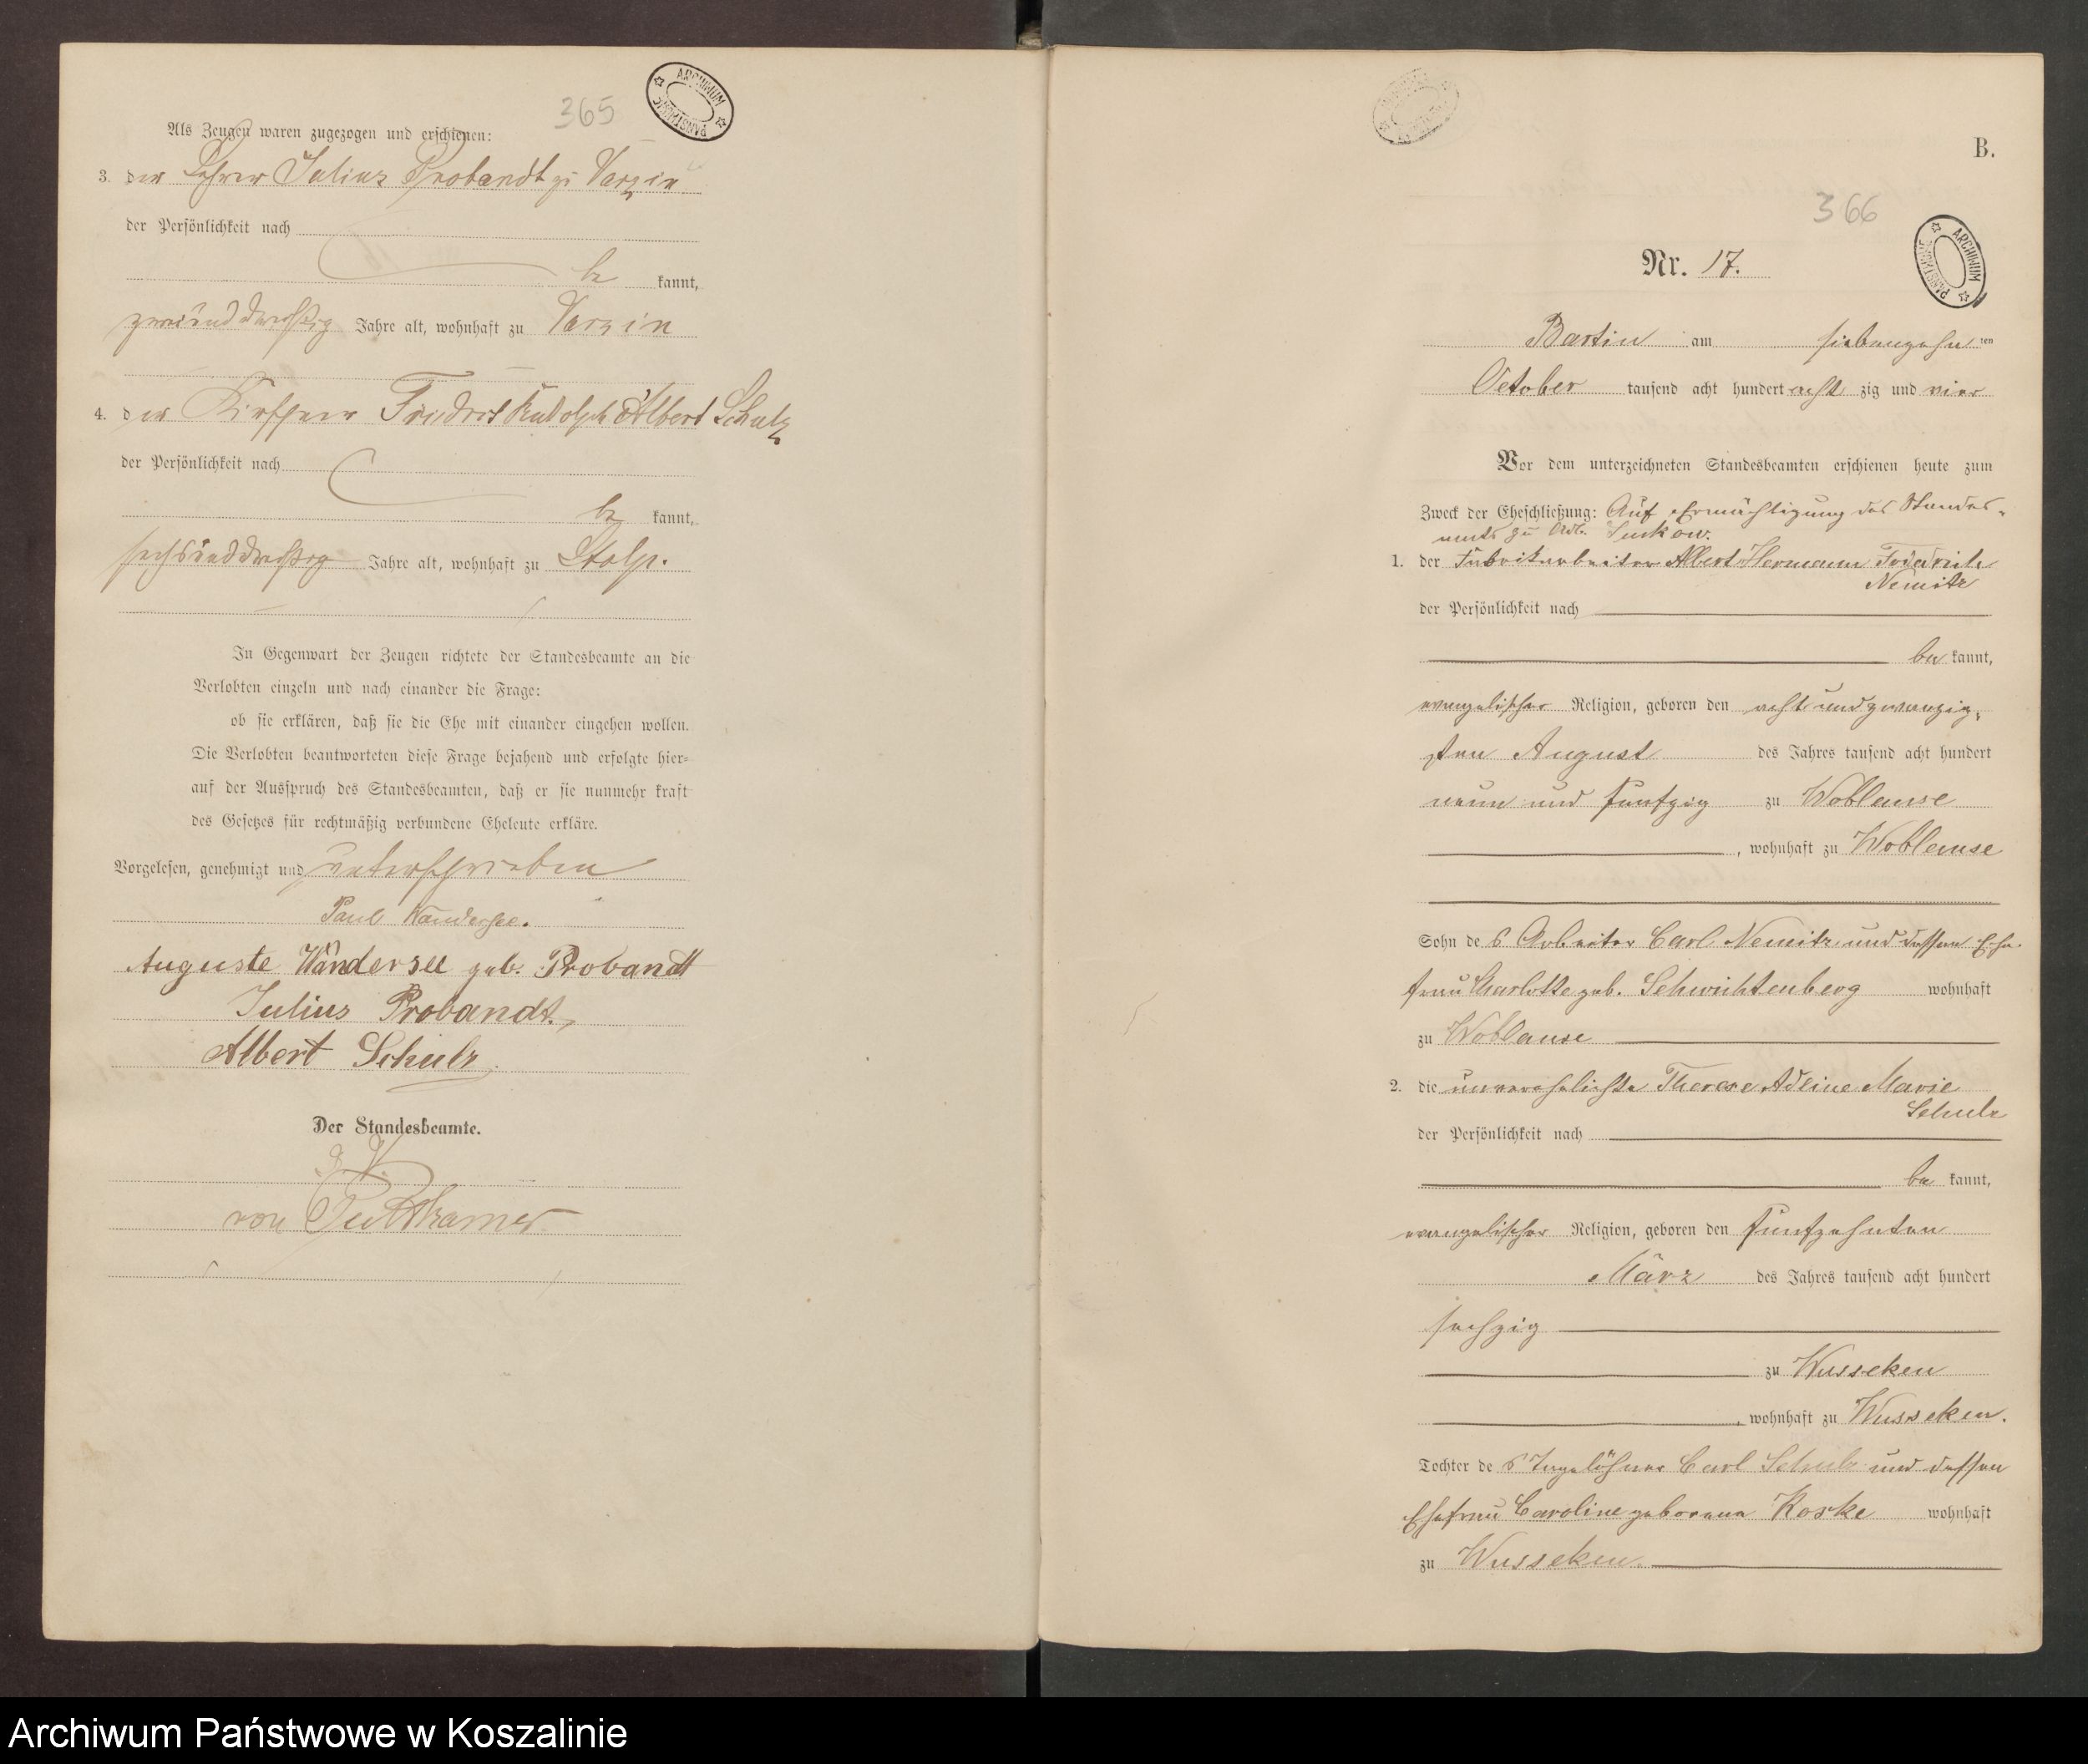 365
ARCHIWUM PAŃSTWOWE
Als Zeugen waren zugezogen und erschienen:
3. der Lehrer Julius Probandt zu Varzin
der Persönlichkeit nach
be kannt,
zweiunddreißig Jahre alt, wohnhaft zu Varzin
4. der Kirschner Friedrich Rudolph Albert Schulz
der Persönlichkeit nach
be kannt,
sechsunddreißig Jahre alt, wohnhaft zu Stolp.
In Gegenwart der Zeugen richtete der Standesbeamte an die
Verlobten einzeln und nach einander die Frage:
ob sie erklären, daß sie die Ehe mit einander eingehen wollen.
Die Verlobten beantworteten diese Frage bejahend und erfolgte hier-
auf der Ausspruch des Standesbeamten, daß er sie nunmehr kraft
des Gesetzes für rechtmäßig verbundene Eheleute erkläre.
Vorgelesen, genehmigt und unterschrieben
Paul Wandersee.
Auguste Wandersee geb. Probandt
Julius Probandt.
Albert Schulz.
Der Standesbeamte.
von Puttkamer
B.
366
ARCHIWUM PAŃSTWOWE
Nr. 17.
Bartin am siebenzehn ten
October tausend acht hundert acht zig und vier
Vor dem unterzeichneten Standesbeamten erschienen heute zum
Zweck der Eheschließung: Auf Ermächtigung des Standes-
amts zu Adl. Suckow.
1. der Fabrikarbeiter Albert Hermann Friedrich
Nemitz
der Persönlichkeit nach
be kannt,
evangelischer Religion, geboren den acht und zwanzig-
sten August des Jahres tausend acht hundert
neun und fünfzig zu Woblanse
, wohnhaft zu Woblanse
Sohn de s Arbeiter Carl Nemitz und dessen Ehe-
frau Charlotte geb. Schwichtenberg wohnhaft
zu Woblanse
2. die unverehelichte Therese Adeine Marie
Schulz
der Persönlichkeit nach
be kannt,
evangelischer Religion, geboren den fünfzehnten
März des Jahres tausend acht hundert
sechzig
zu Wusseken
, wohnhaft zu Wusseken.
Tochter de s Tagelöhner Carl Schulz und dessen
Ehefrau Caroline geborene Koske wohnhaft
zu Wusseken.
Archiwum Państwowe w Koszalinie